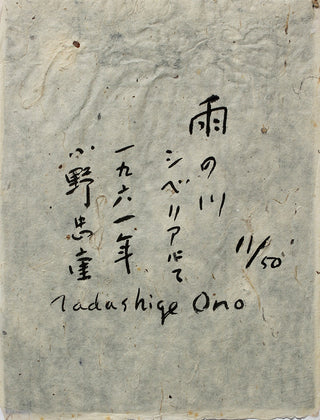 雨の川
シベリアにて
一九六一年
小野忠重
11/50
Tadashige Ono